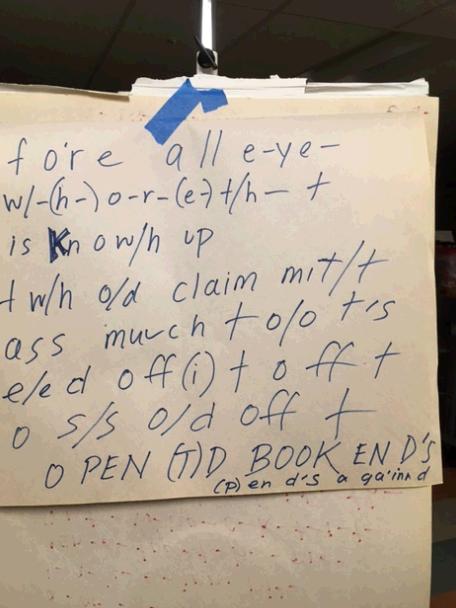 fo're all e-ye-
w/-(h-)o-r-(e-)t/h- t
is Know/h up
t w/h o/d claim mit/t
ass murch t o/o t's
e/ed off(i) t o ff t
o s/s o/d off t
O PEN (T)D BOOK EN D'S
(P) en d's a ga'inn d